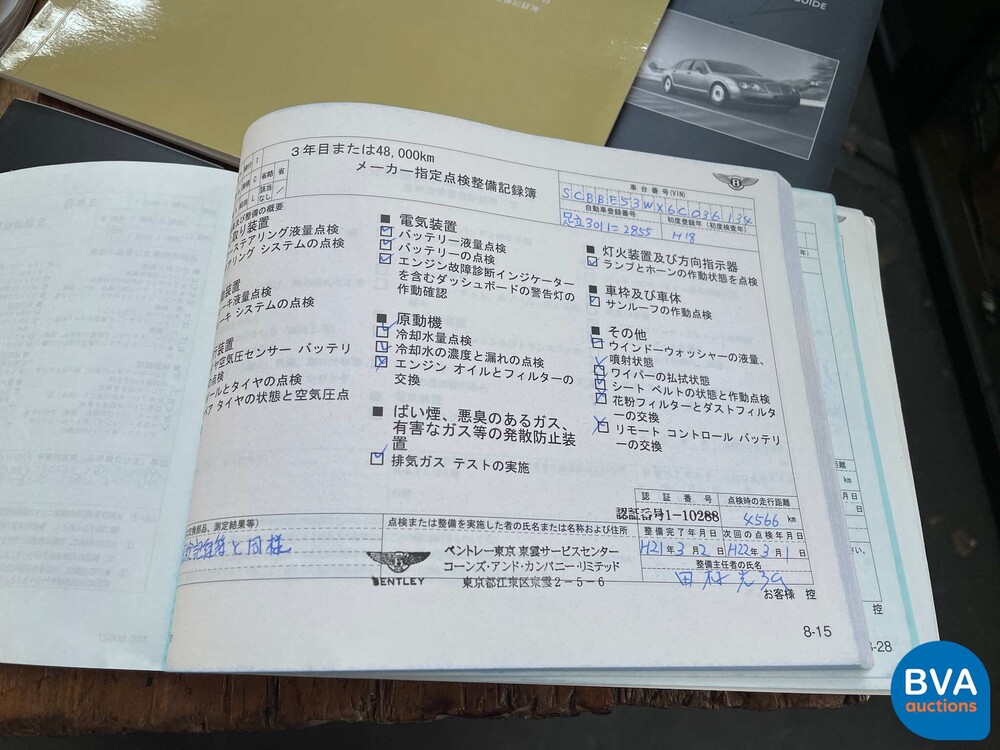 GUIDE
3年目または48,000km
メーカー指定点検整備記録簿
車台番号(VIN)
SCBBE53WX6C036134
自動車登録番号
初度登録年(初度検査年)
足立301に2855
H18
省略
省
該当なし
び整備の概要
ステアリング液量点検
アリング システムの点検
ーキ液量点検
ーキ システムの点検
ヤ空気圧センサー バッテリ
の点検
ールとタイヤの点検
ペア タイヤの状態と空気圧点
■ 電気装置
バッテリー液量点検
バッテリーの点検
エンジン故障診断インジケーター
を含むダッシュボードの警告灯の
作動確認
■ 原動機
冷却水量点検
冷却水の濃度と漏れの点検
エンジン オイルとフィルターの
交換
■ ばい煙、悪臭のあるガス、
有害なガス等の発散防止装
置
排気ガス テストの実施
■ 灯火装置及び方向指示器
ランプとホーンの作動状態を点検
■ 車枠及び車体
サンルーフの作動点検
■ その他
ウインドーウォッシャーの液量、
噴射状態
ワイパーの払拭状態
シート ベルトの状態と作動点検
花粉フィルターとダストフィルタ
ーの交換
リモート コントロール バッテリ
ーの交換
交換部品、測定結果等)
記録簿と同様
点検または整備を実施した者の氏名または名称および住所
BENTLEY
ベントレー東京 東雲サービスセンター
コーンズ・アンド・カンパニー・リミテッド
東京都江東区東雲2-5-6
認証番号
点検時の走行距離
認証番号1-10288
4566 km
整備完了年月日
次回の点検年月日
H21年3月2日
H22年3月1日
整備主任者の氏名
お客様 控
8-15
距離
km
月日
日
さい。
控
8-28
BVA
auctions